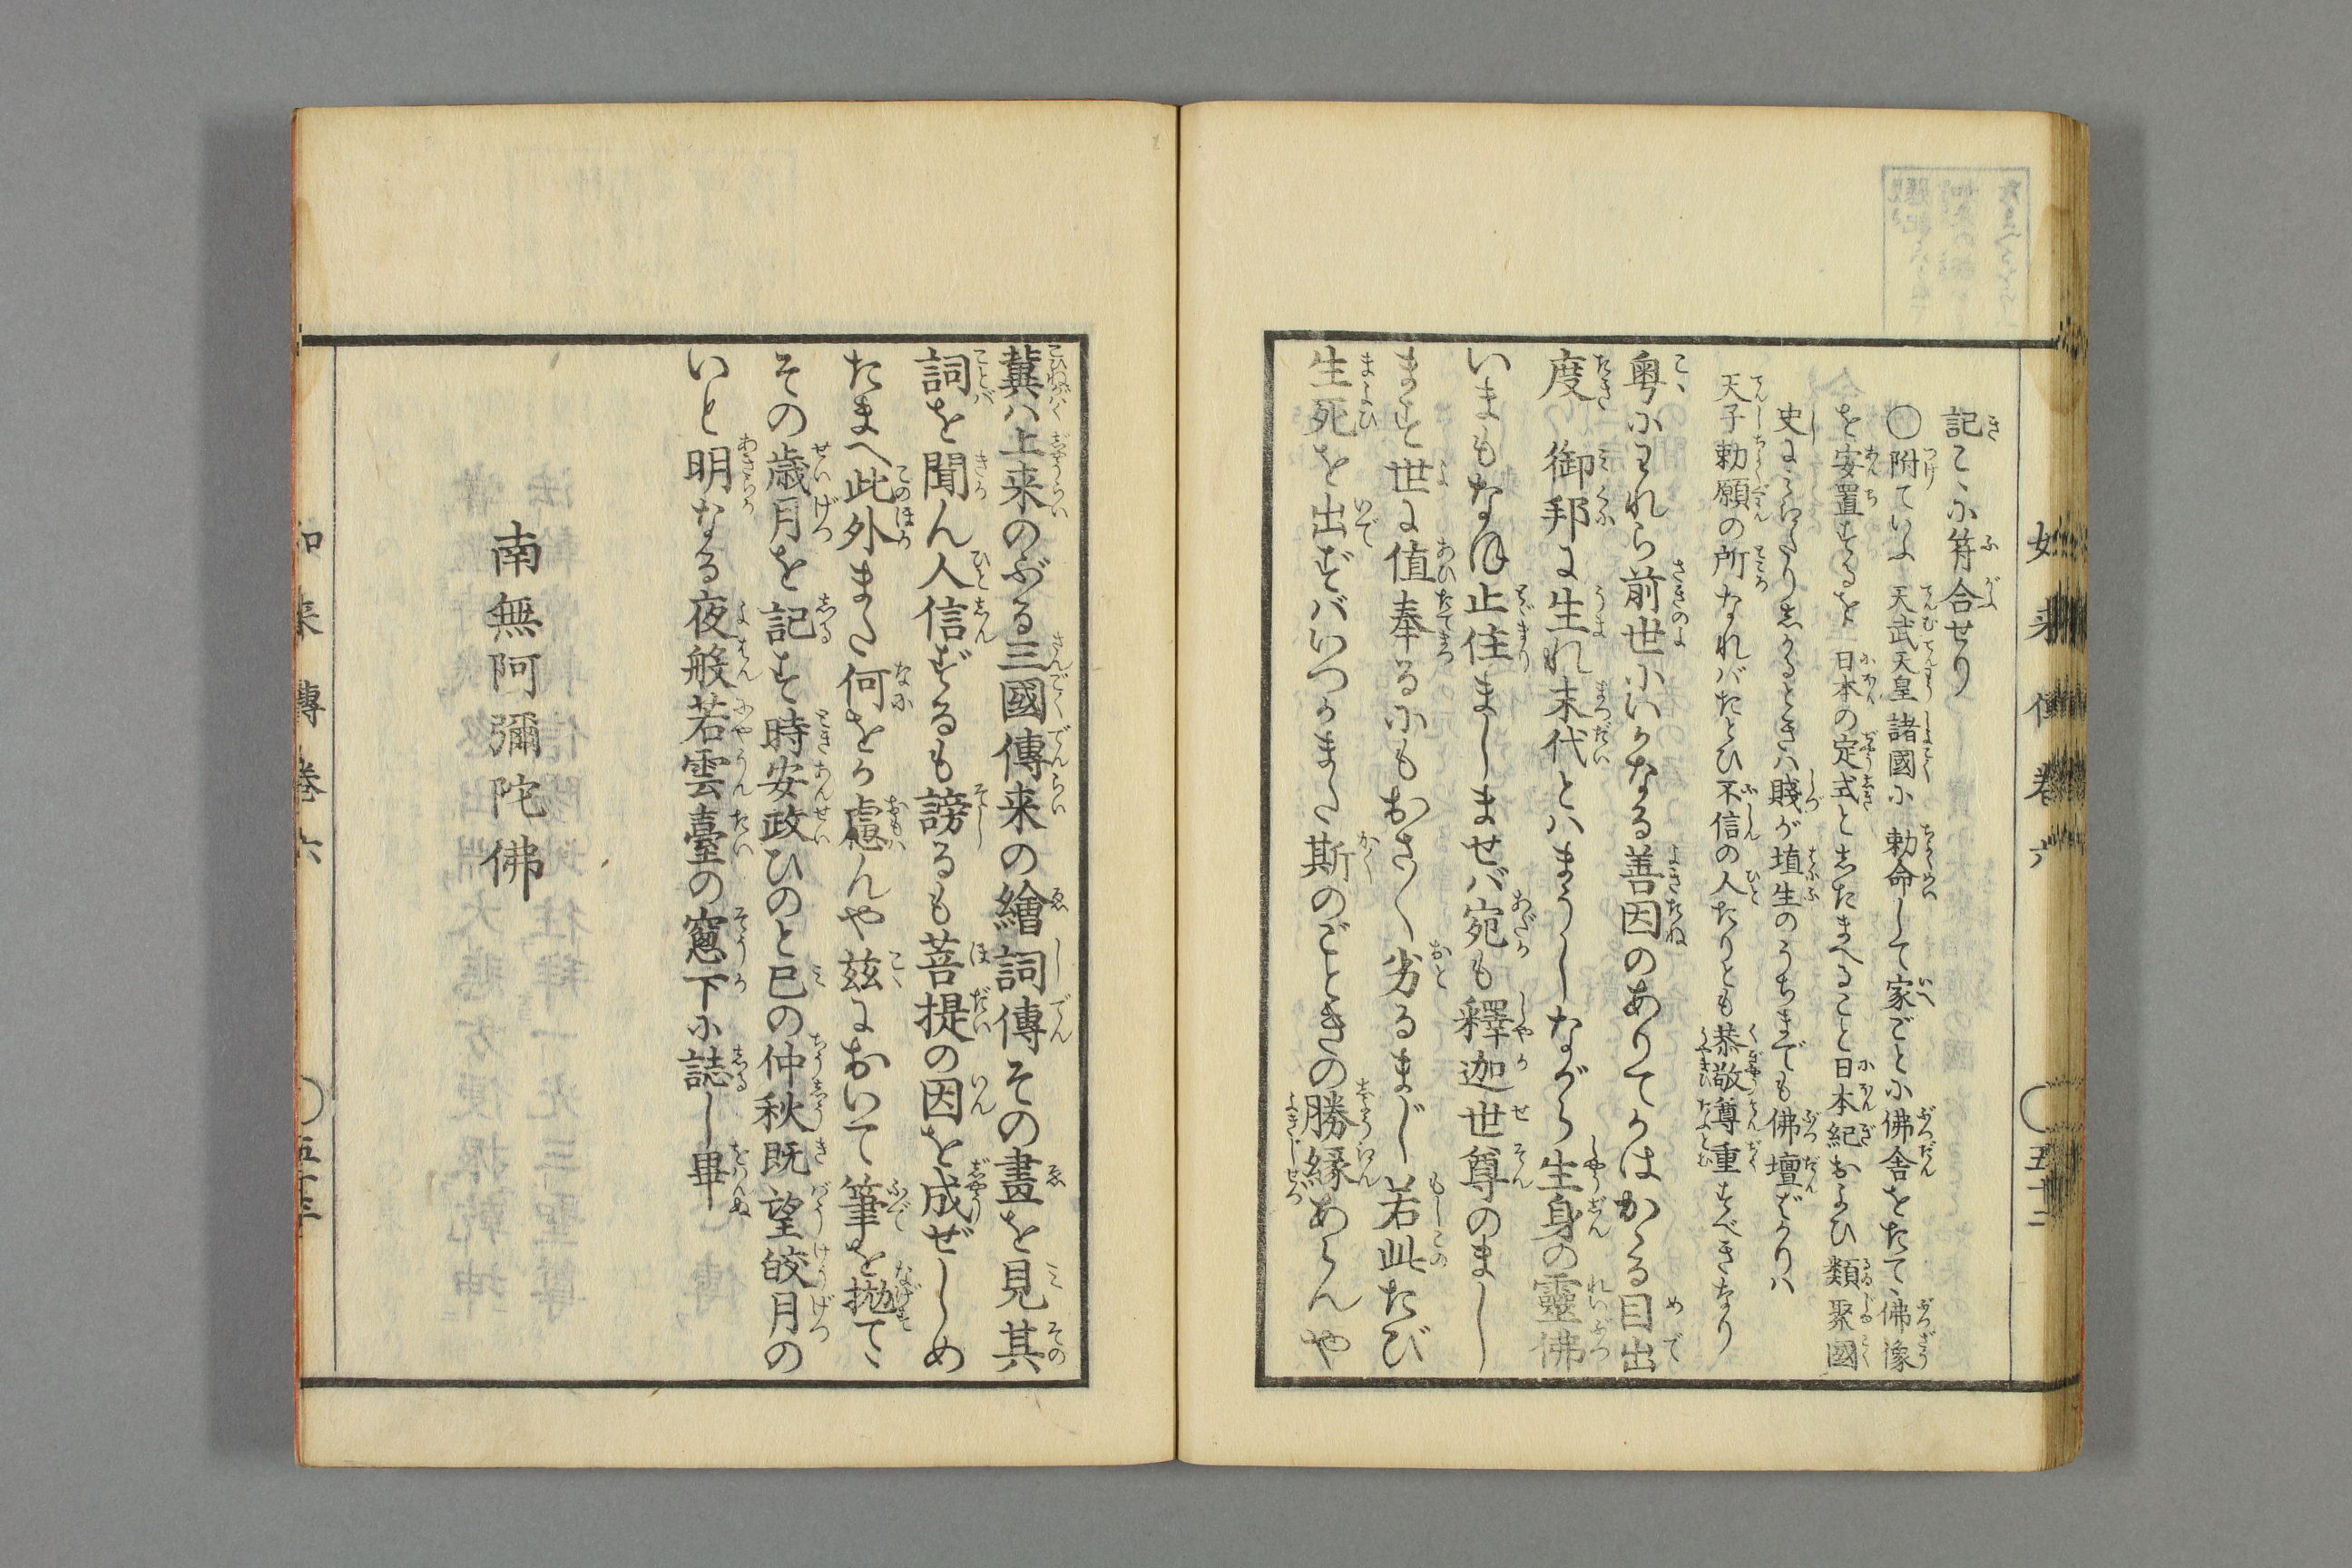 如来傳卷六
五十二
記こゝに符合せり
○附ていふ天武天皇諸國に勅命して家ごとに佛舎をたて、佛像
を安置するを日本の定式としたまへること日本紀および類聚國
史に見えたりしかるときハ賤が埴生のうちまでも佛壇ばかりハ
天子勅願の所なればたとひ不信の人たりとも恭敬尊重すべきなり
粤にわれら前世にいかなる善因のありてかはかゝる目出
度御邦に生れ末代とハまうしながら生身の靈佛
いまもなほ止住ましませバ宛も釋迦世尊のまし
ます世に値奉るにもおさ〱劣るまじ若此たび
生死を出ずバいつかまた斯のごときの勝縁あらんや
冀ハ上来のぶる三國傳来の繪詞傳その畫を見其
詞を聞ん人信ずるも謗るも菩提の因を成ぜしめ
たまへ此外また何をか慮んや茲において筆を抛て、
その歳月を記す時安政ひのと巳の仲秋既望皎月の
いと明なる夜般若雲臺の窓下に誌し畢
南無阿彌陀佛
如来傳卷六